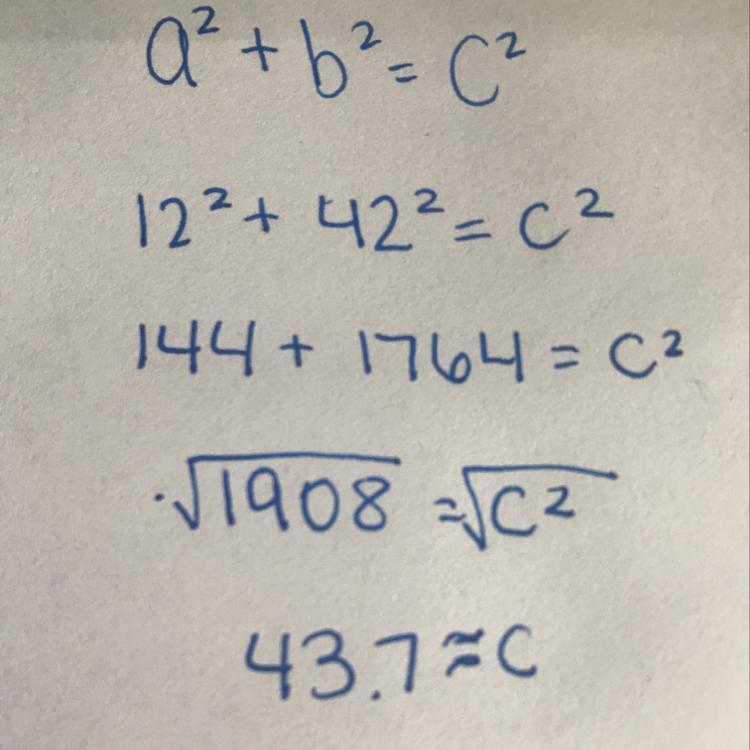 a² + b² = c²
12² + 42² = c²
144 + 1764 = c²
√1908 = √c²
43.7 ≈ c